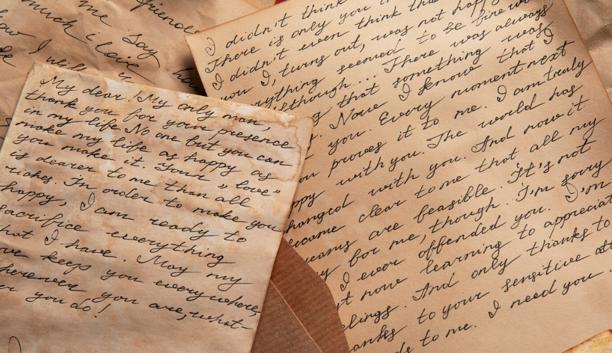 friends
much i love
me say
How I wish
My dear! My only man,
thank you for your presence
in my life No one but you can
make my life as happy as
you make it. Your "love"
is dearer to me than all
In order to make you
happy, I am ready to
sacrifice everything
that I have. May my
keeps you everywhere
wherever you are, what-
ever you do!
I didn't think
There is only you in
I didn't even think that
you I, turns out, was not happy
everything seemed to be fine
although... There was always
that something was
Now I know that I
you. Every moment next
you proves it to me. I am truly
happy with you. The world has
changed with you. And now it
became clear to me that all my
dreams are feasible. It's not
for me, though. I'm sorry
I ever offended you. I'm
just now learning to appreciate
feelings. And only thanks to
thanks to your sensitive
to me. I need you